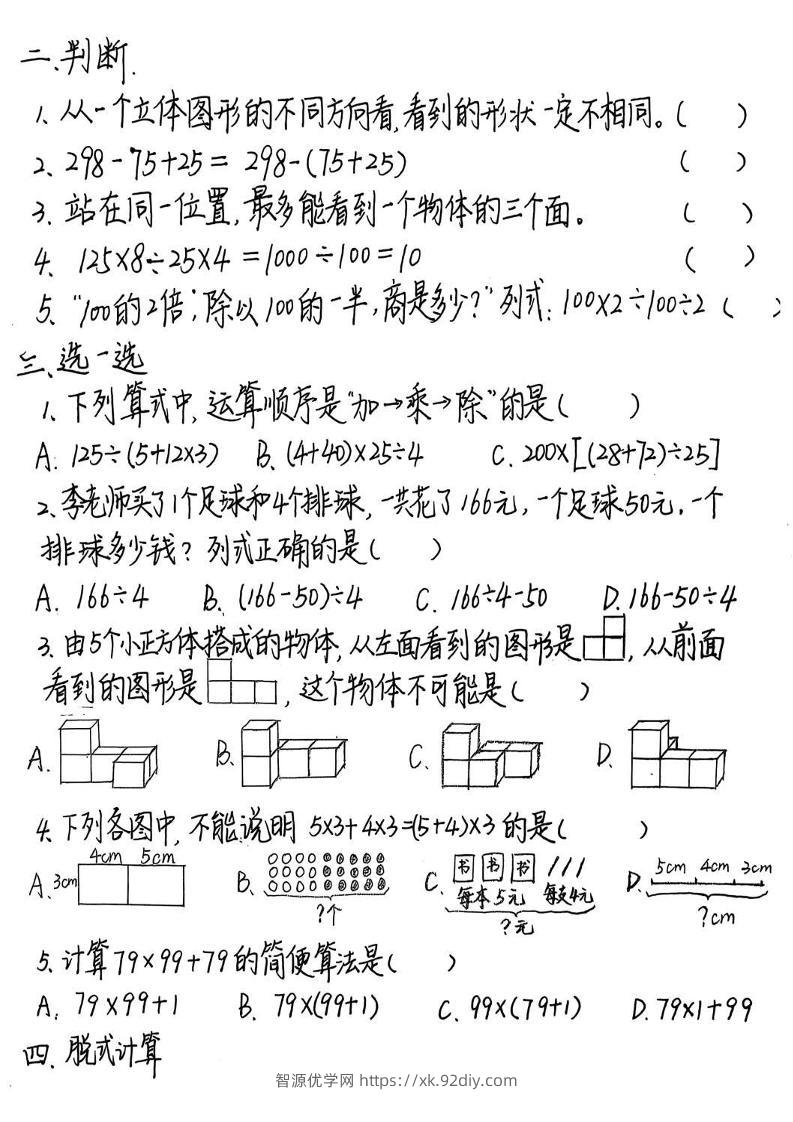 二、判断.
1. 从一个立体图形的不同方向看,看到的形状一定不相同。(    )
2. 298-75+25= 298-(75+25) (    )
3. 站在同一位置,最多能看到一个物体的三个面。 (    )
4. 125×8÷25×4 =1000÷100=10 (    )
5. "100的2倍,除以100的一半,商是多少?"列式: 100×2÷100÷2 (    )
三、选一选
1. 下列算式中,运算顺序是"加→乘→除"的是(    )
A. 125÷(5+12×3) B. (4+40)×25÷4 C. 200×[(28+72)÷25]
2. 李老师买了1个足球和4个排球,一共花了166元,一个足球50元,一个
排球多少钱?列式正确的是(    )
A. 166÷4 B. (166-50)÷4 C. 166÷4-50 D. 166-50÷4
3. 由5个小正方体搭成的物体,从左面看到的图形是,从前面
看到的图形是,这个物体不可能是(    )
A. B. C. D.
4. 下列各图中,不能说明 5×3+4×3=(5+4)×3 的是(    )
A. 3cm 4cm 5cm B. ?个 C. 书 书 书 每本5元 每支4元 ?元 D. 5cm 4cm 3cm ?cm
5. 计算79×99+79的简便算法是(    )
A. 79×99+1 B. 79×(99+1) C. 99×(79+1) D. 79×1+99
四、脱式计算
智源优学网 https://xk.92diy.com